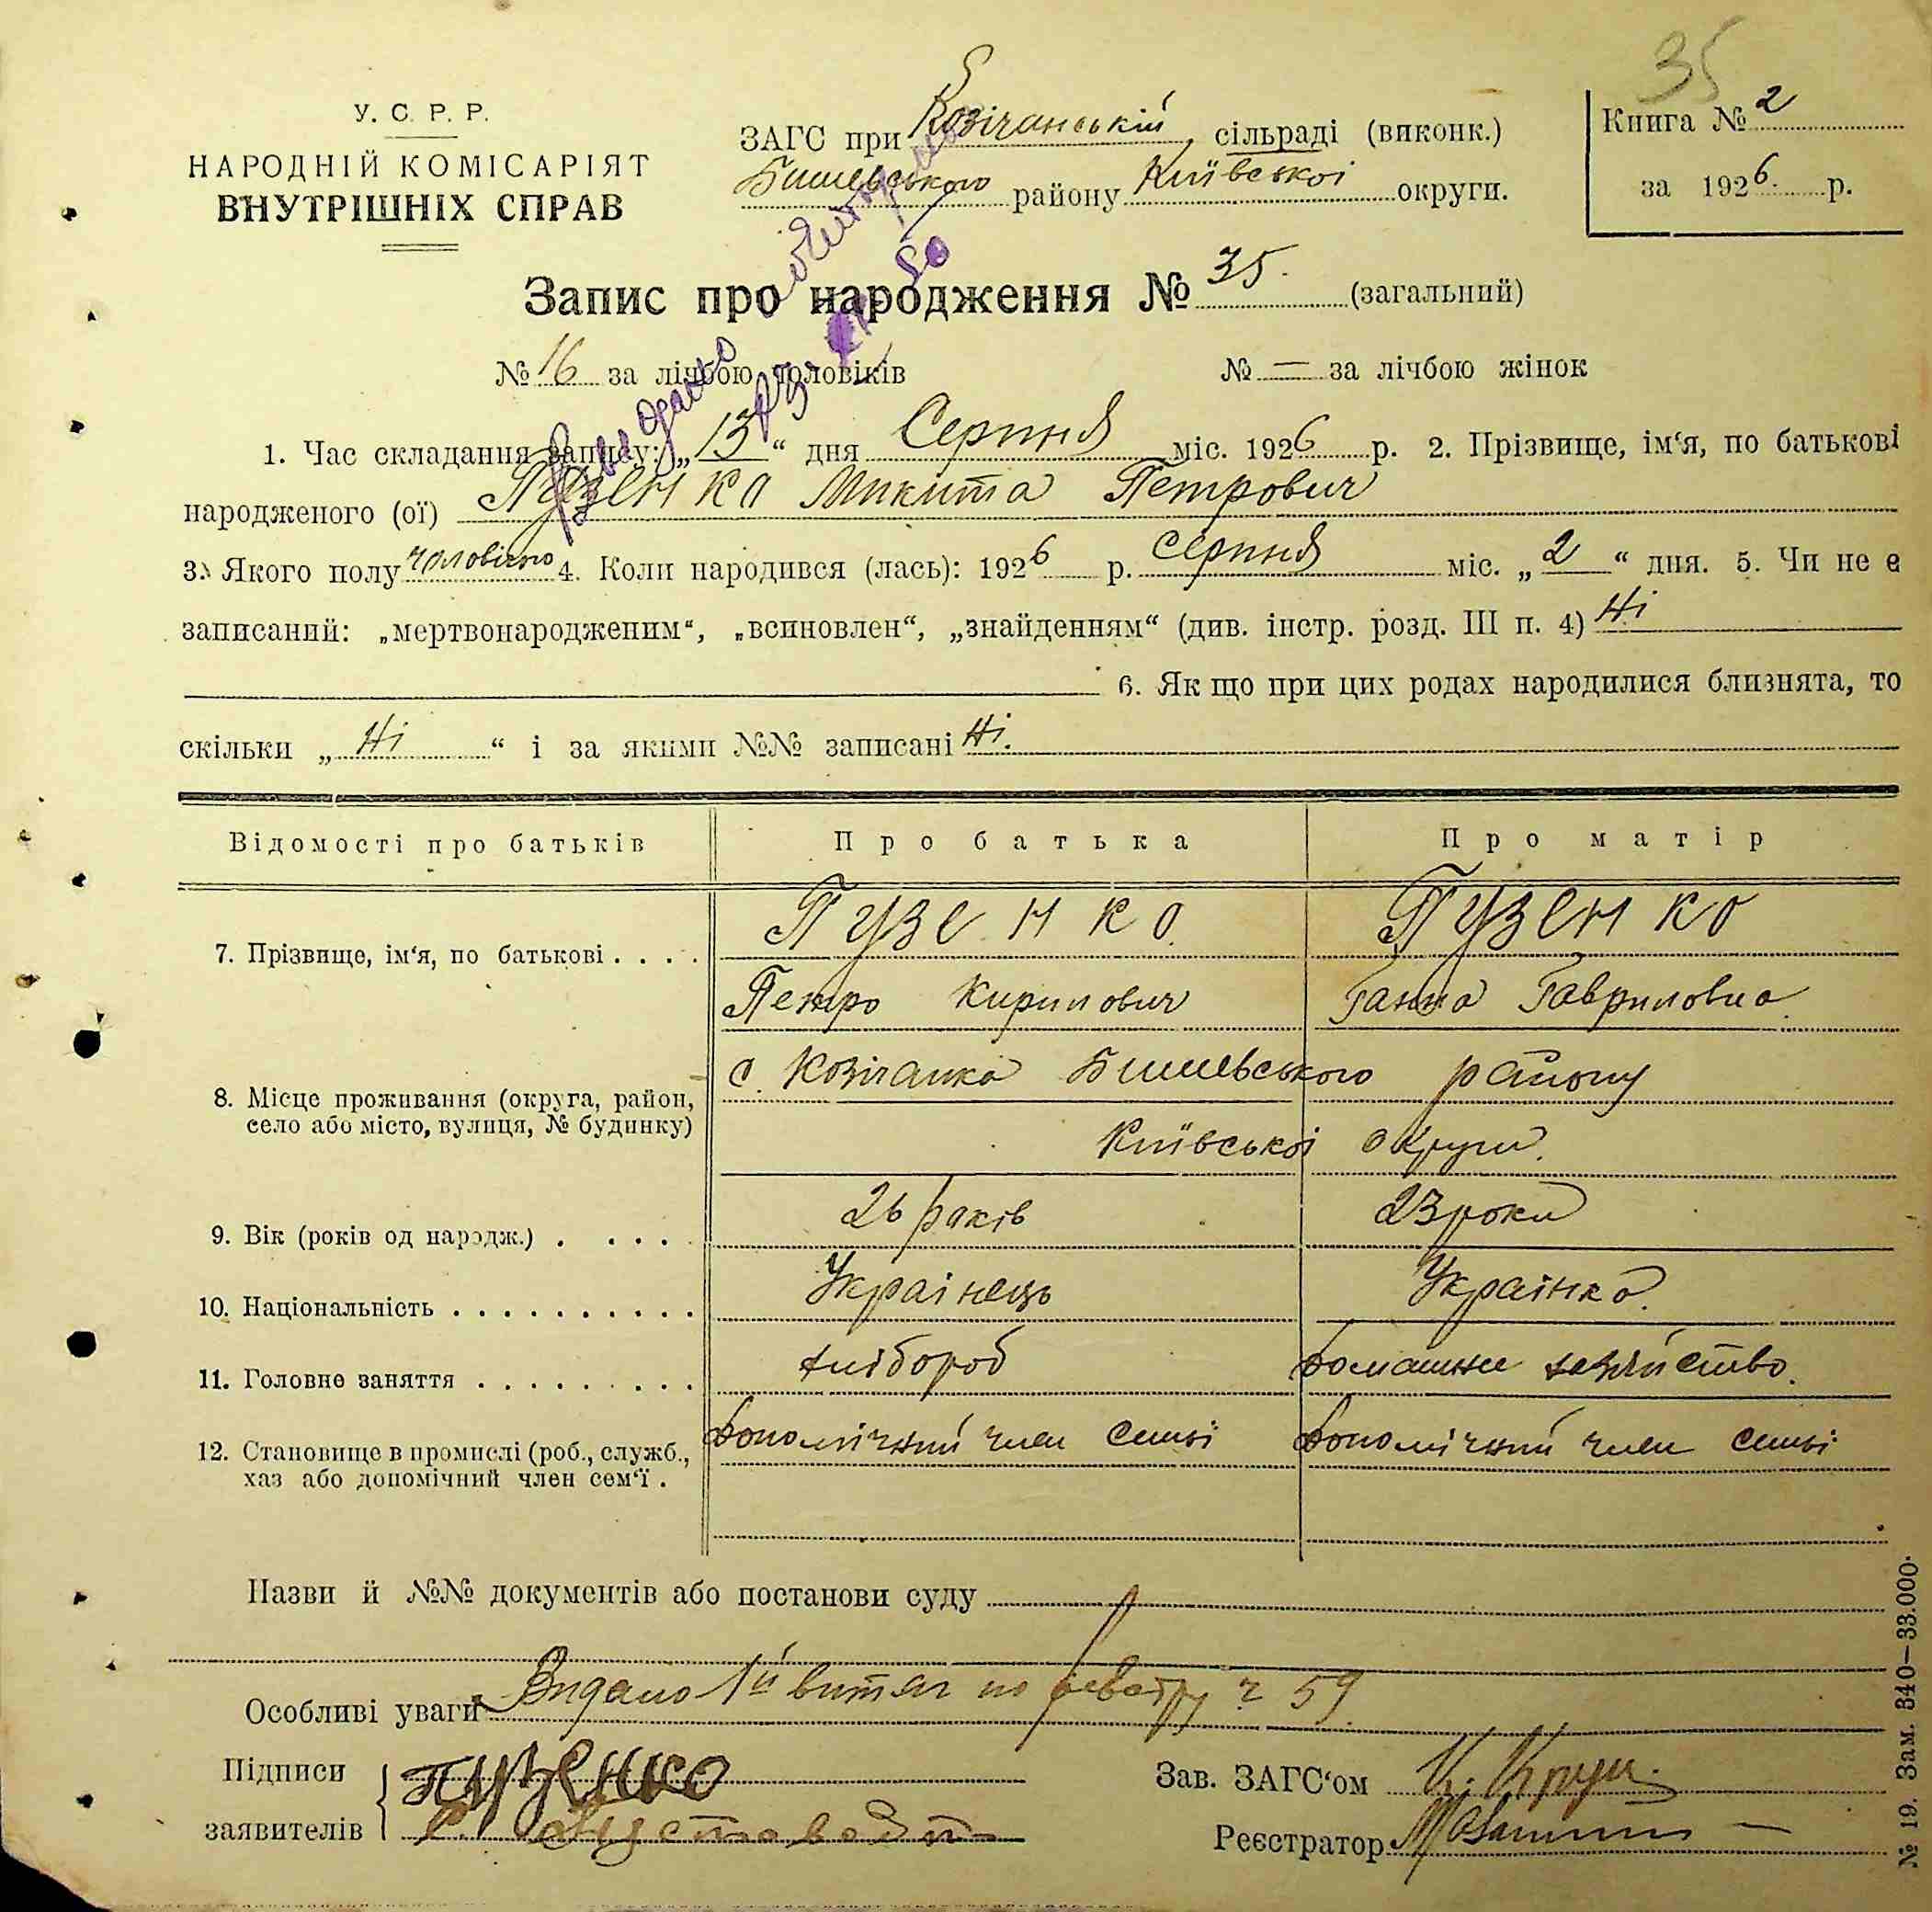 35
У. С. Р. Р.
НАРОДНІЙ КОМІСАРІЯТ
ВНУТРІШНІХ СПРАВ
ЗАГС при Козічанській сільраді (виконк.)
Бишевського району Київскоі округи.
Книга № 2
за 1926 р.
Запис про народження № 35. (загальний)
№ 16 за лічбою чоловіків № — за лічбою жінок
1. Час складання запису: „13“ дня Серпня міс. 1926 р. 2. Прізвище, ім‘я, по батькові
народженого (ої) Пузенко Микита Петрович
3. Якого полу чоловічого 4. Коли народився (лась): 1926 р. серпня міс. „2“ дня. 5. Чи не є
записаний: „мертвонародженим“, „всиновлен“, „знайденням“ (див. інстр. розд. III п. 4) Ні
6. Як що при цих родах народилися близнята, то
скільки „Ні“ і за якими №№ записані Ні.
Відомості про батьків Про батька Про матір
7. Прізвище, ім‘я, по батькові . . . . Пузенко Пузенко
Петро Кирилович Ганна Гавриловна
8. Місце проживання (округа, район, село або місто, вулиця, № будинку) с. Козічанка Бишевського району
Київськоі округи.
9. Вік (років од народж.) . . . . . 26 років 23 роки
10. Національність . . . . . . . . . . . Украінець Украінка.
11. Головне заняття . . . . . . . . . хлібороб домашнє хазяйство.
12. Становище в промислі (роб., служб., хаз або допомічний член сем‘ї . допомічний член семьі допомічний член семьі
Назви й №№ документів або постанови суду
Особливі уваги Видано 1й витяг по реєстру ч 59.
Підписи Пузенко Зав. ЗАГС‘ом
заявителів Реєстратор
№ 19. Зам. 340—33.000.